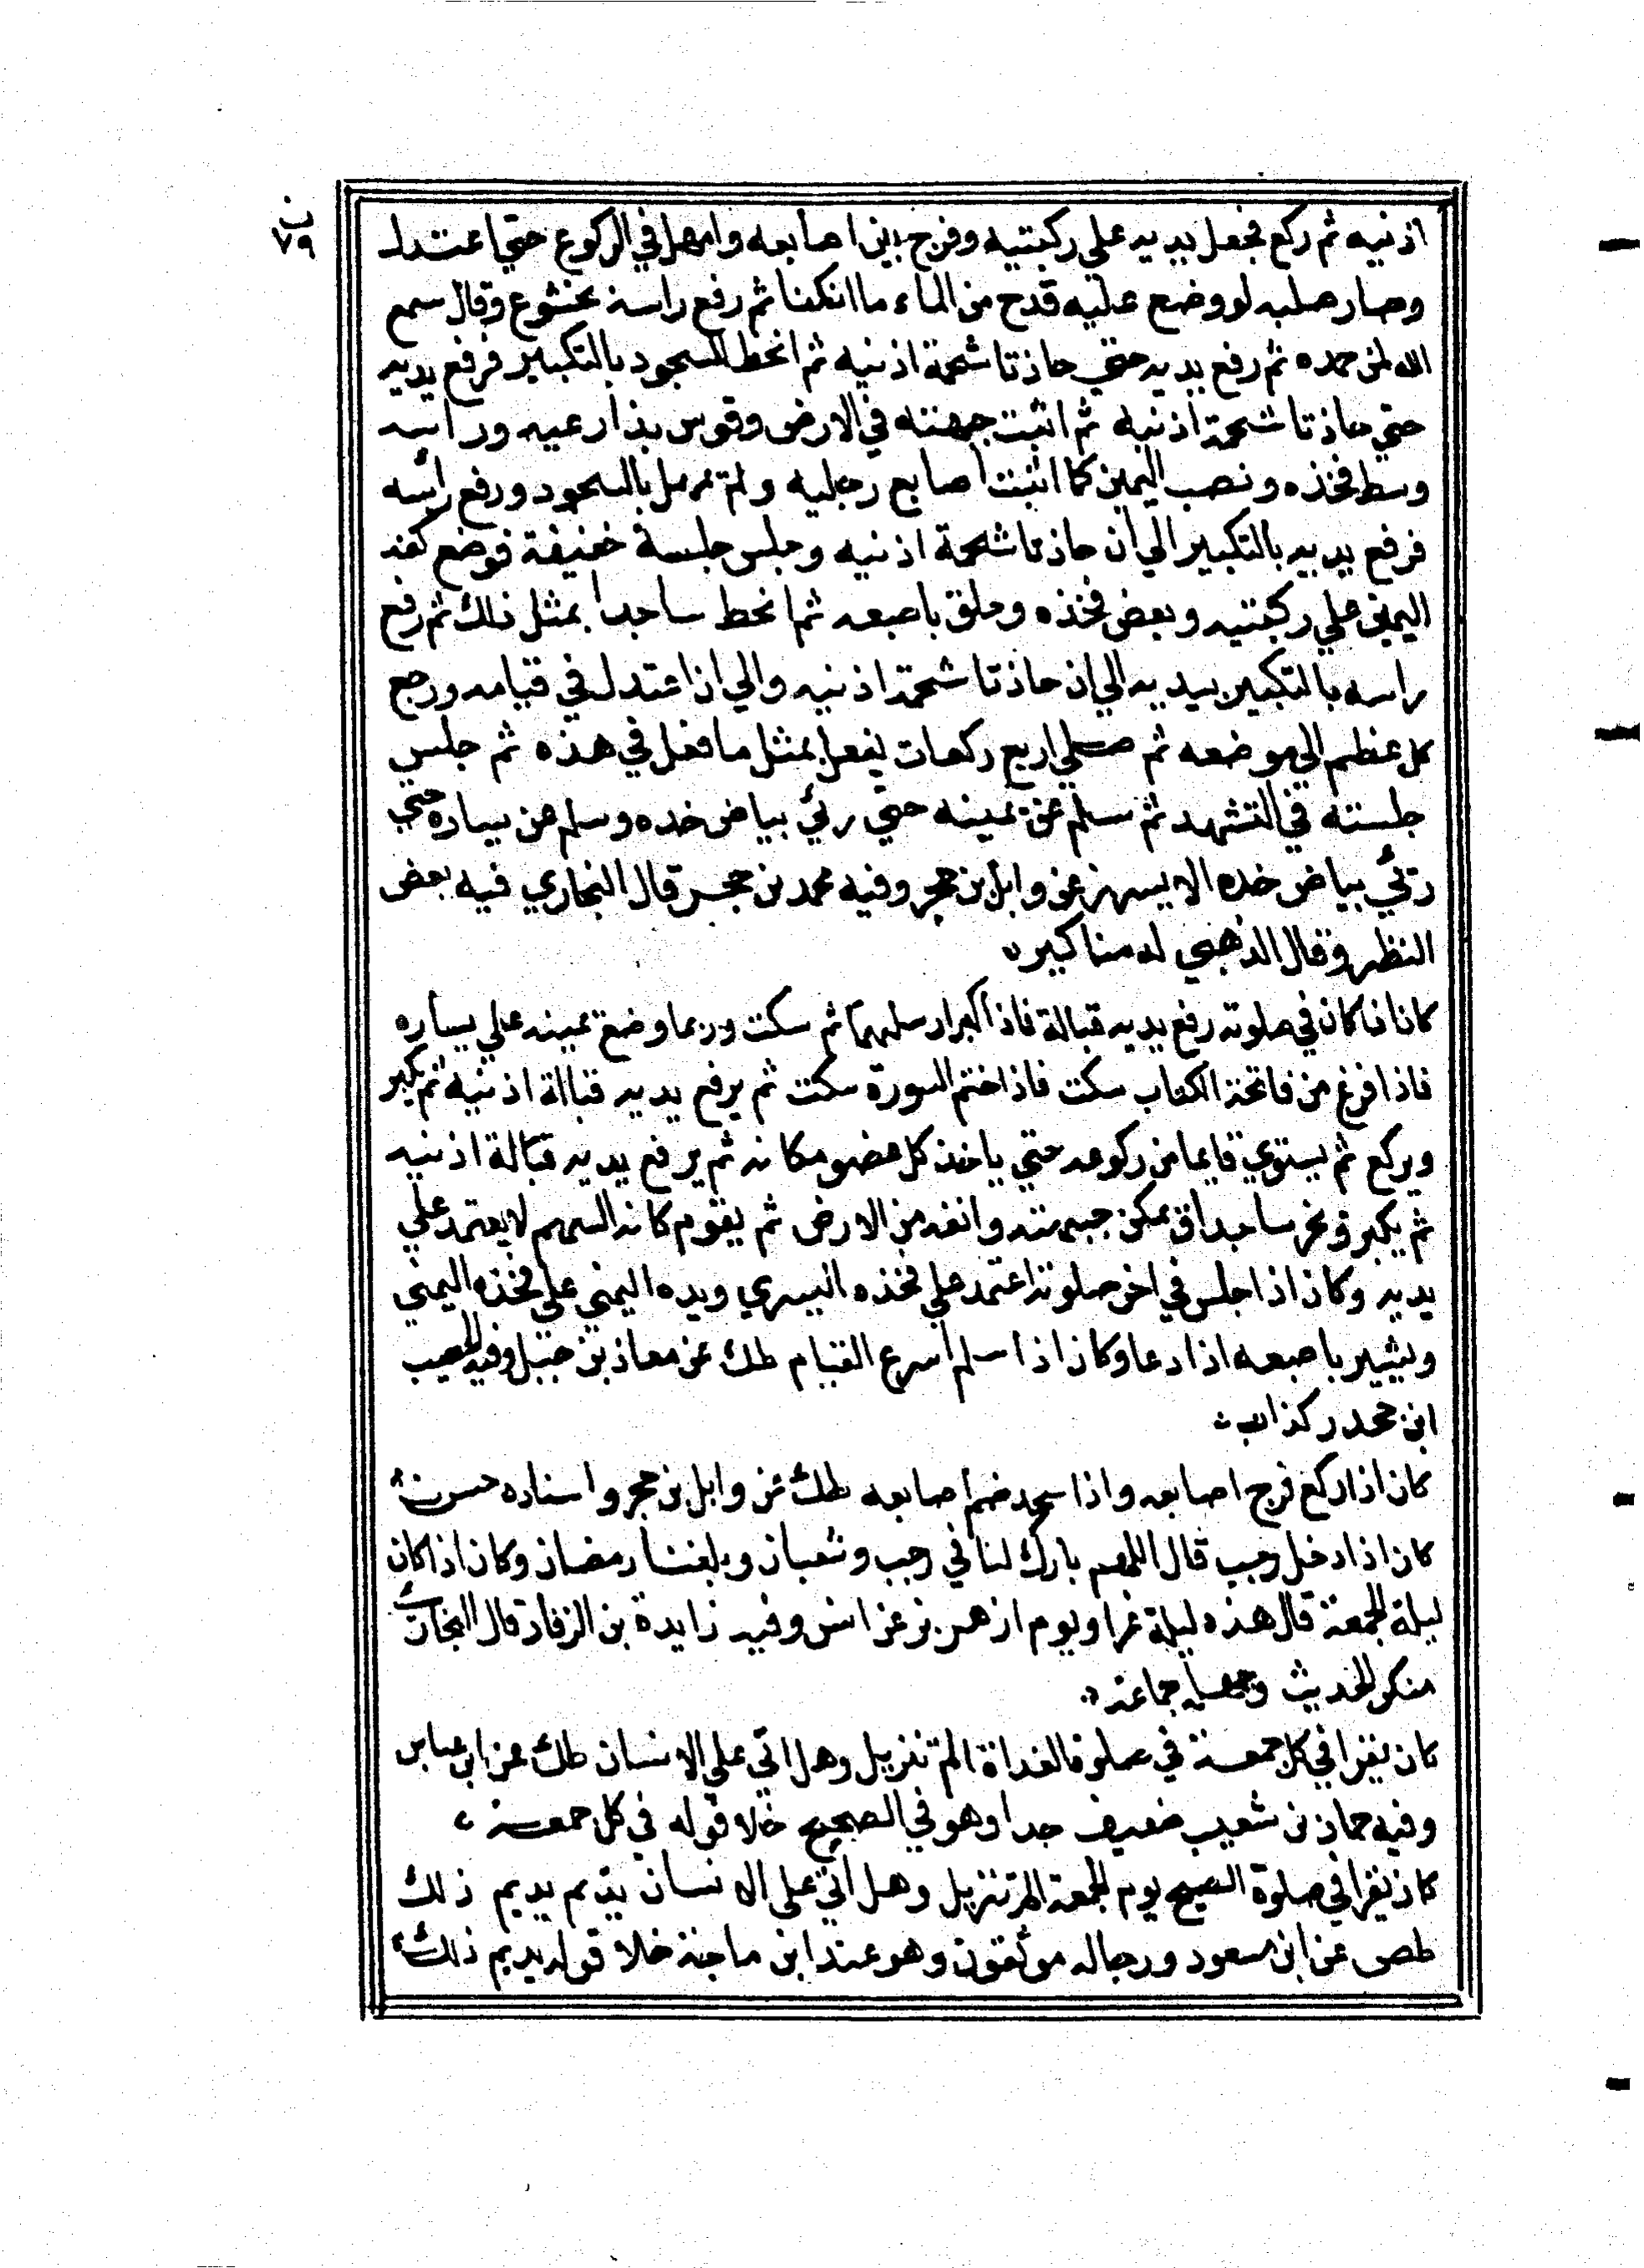 ب
٧٩
اذنيه ثم ركع فجعل يديه علي ركبتيه وفرج بين اصابعه وامهل في الركوع حتي اعتدل
وصار صلبه لو وضع عليه قدح من الماء ما انكفا ثم رفع راسه بخشوع وقال سمع
الله لمن حمده ثم رفع يديه حتي حاذتا شحمة اذنيه ثم انحط للسجود بالتكبير فرفع يديه
حتي حاذتا شحمة اذنيه ثم اثبت جبهته في الارض وقوس بذارعيه وراسه
وسط فخذه ونصب اليمين كما اثبت اصابع رجليه ولم يمهل بالسجود ورفع رأسه
فرفع يديه بالتكبير الي ان حاذتا شحمة اذنيه وجلس جلسة خفيفة فوضع كفه
اليمني علي ركبتيه وبعض فخذه وحلق باصبعه ثم انحط ساجدا بمثل ذلك ثم رفع
راسه بالتكبير بيديه الي ان حاذتا شحمة اذنيه والي ان اعتدل في قيامه ورجع
كل عظم الي موضعه ثم صلي اربع ركعات يفعل بمثل ما فعل في هذه ثم جلس
جلسته في التشهد ثم سلم عن يمينه حتي رئي بياض خده وسلم عن يساره حتي
رئي بياض خده الايسر بز عن وايل بن حجر وفيه محمد بن حجر قال البخاري فيه بعض
النظر وقال الذهبي له مناكير
كان اذا كان في صلوته رفع يديه قبالة فاذا كبر ارسلهما ثم سكت وربما وضع يمينه علي يساره
فاذا فرغ من فاتحة الكتاب سكت فاذا ختم السورة سكت ثم يرفع يديه قبالة اذنيه ثم يكبر
ويركع ثم يستوي قايما من ركوعه حتي ياخذ كل عضو مكانه ثم يرفع يديه قبالة اذنيه
ثم يكبر ويخر ساجدا ويمكن جبهته وانفه من الارض ثم يقوم كانه السهم لا يعتمد علي
يديه وكان اذا جلس في اخر صلوته اعتمد علي فخذه اليسري ويده اليمني علي فخذه اليمني
ويشير باصبعه اذا دعا وكان اذا سلم اسرع القيام طك عن معاذ بن جبل وفيه الخصيب
ابن جحدر كذاب
كان اذا ركع فرج اصابعه واذا سجد ضم اصابعه طك عن وايل بن حجر واسناده حسن
كان اذا دخل رجب قال اللهم بارك لنا في رجب وشعبان وبلغنا رمضان وكان اذا كان
ليلة الجمعة قال هذه ليلة غرا ويوم ازهر بز عن انس وفيه زايدة بن الرقاد قال البخاري
منكر الحديث وجهله جماعة
كان يقرا في كل جمعة في صلوة الغداة الم تنزيل وهل اتي علي الانسان طك عن ابن عباس
وفيه حماد بن شعيب ضعيف جدا وهو في الصحيح خلا قوله في كل جمعة
كان يقرا في صلوة الصبح يوم الجمعة الم تنزيل وهل اتي علي الانسان يديم ذلك
طص عن ابن مسعود ورجاله موثقون وهو عند ابن ماجة خلا قوله يديم ذلك